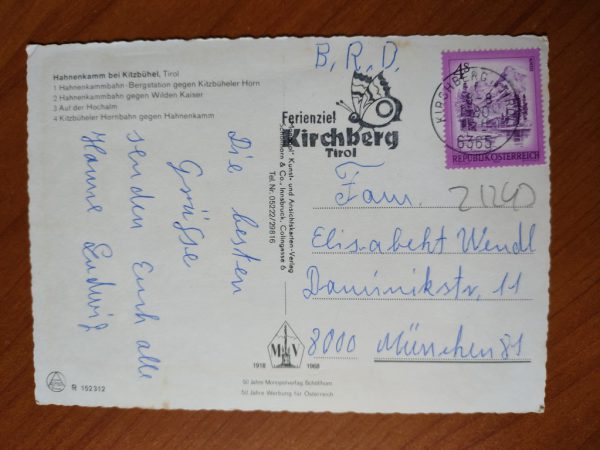 B.R.D.
Hahnenkamm bei Kitzbühel, Tirol
1 Hahnenkammbahn-Bergstation gegen Kitzbüheler Horn
2 Hahnenkammbahn gegen Wilden Kaiser
3 Auf der Hochalm
4 Kitzbüheler Hornbahn gegen Hahnenkamm
Die besten
Grüsse
senden Euch alle
Hanne Ludwig
Kunst- und Ansichtskarten-Verlag
Schöllhorn & Co., Innsbruck, Colingasse 6
Tel. Nr. 05222/29816
Ferienziel
Kirchberg
Tirol
KIRCHBERG
80
6365
4S
REPUBLIK ÖSTERREICH
Fam.
21240
Elisabeht Wendl
Daminikstr. 11
8000 München 81
M V
1918 1968
50 Jahre Monopolverlag Schöllhorn
50 Jahre Werbung für Österreich
R 152312